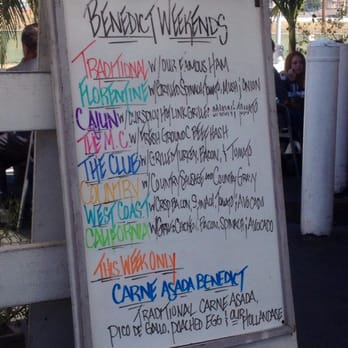 BENEDICT WEEKENDS
TRADITIONAL W/ OUR FAMOUS HAM
FLORENTINE W/ GRILLED SPINACH, ONION
CAJUN W/ LINK GRILLED
THE M.C. W/ FRESH GROUND BEEF HASH
THE CLUB W/ GRILLED TURKEY, BACON, & TOMATO
COUNTRY W/ COUNTRY SAUSAGE AND COUNTRY GRAVY
WEST COAST W/ CRISP BACON, SPINACH, TOMATO, AVOCADO
CALIFORNIA W/ GRILLED CHICKEN, BACON, SPINACH, AVOCADO
THIS WEEK ONLY
CARNE ASADA BENEDICT
TRADITIONAL CARNE ASADA,
PICO DE GALLO, POACHED EGG & OUR HOLLANDAISE